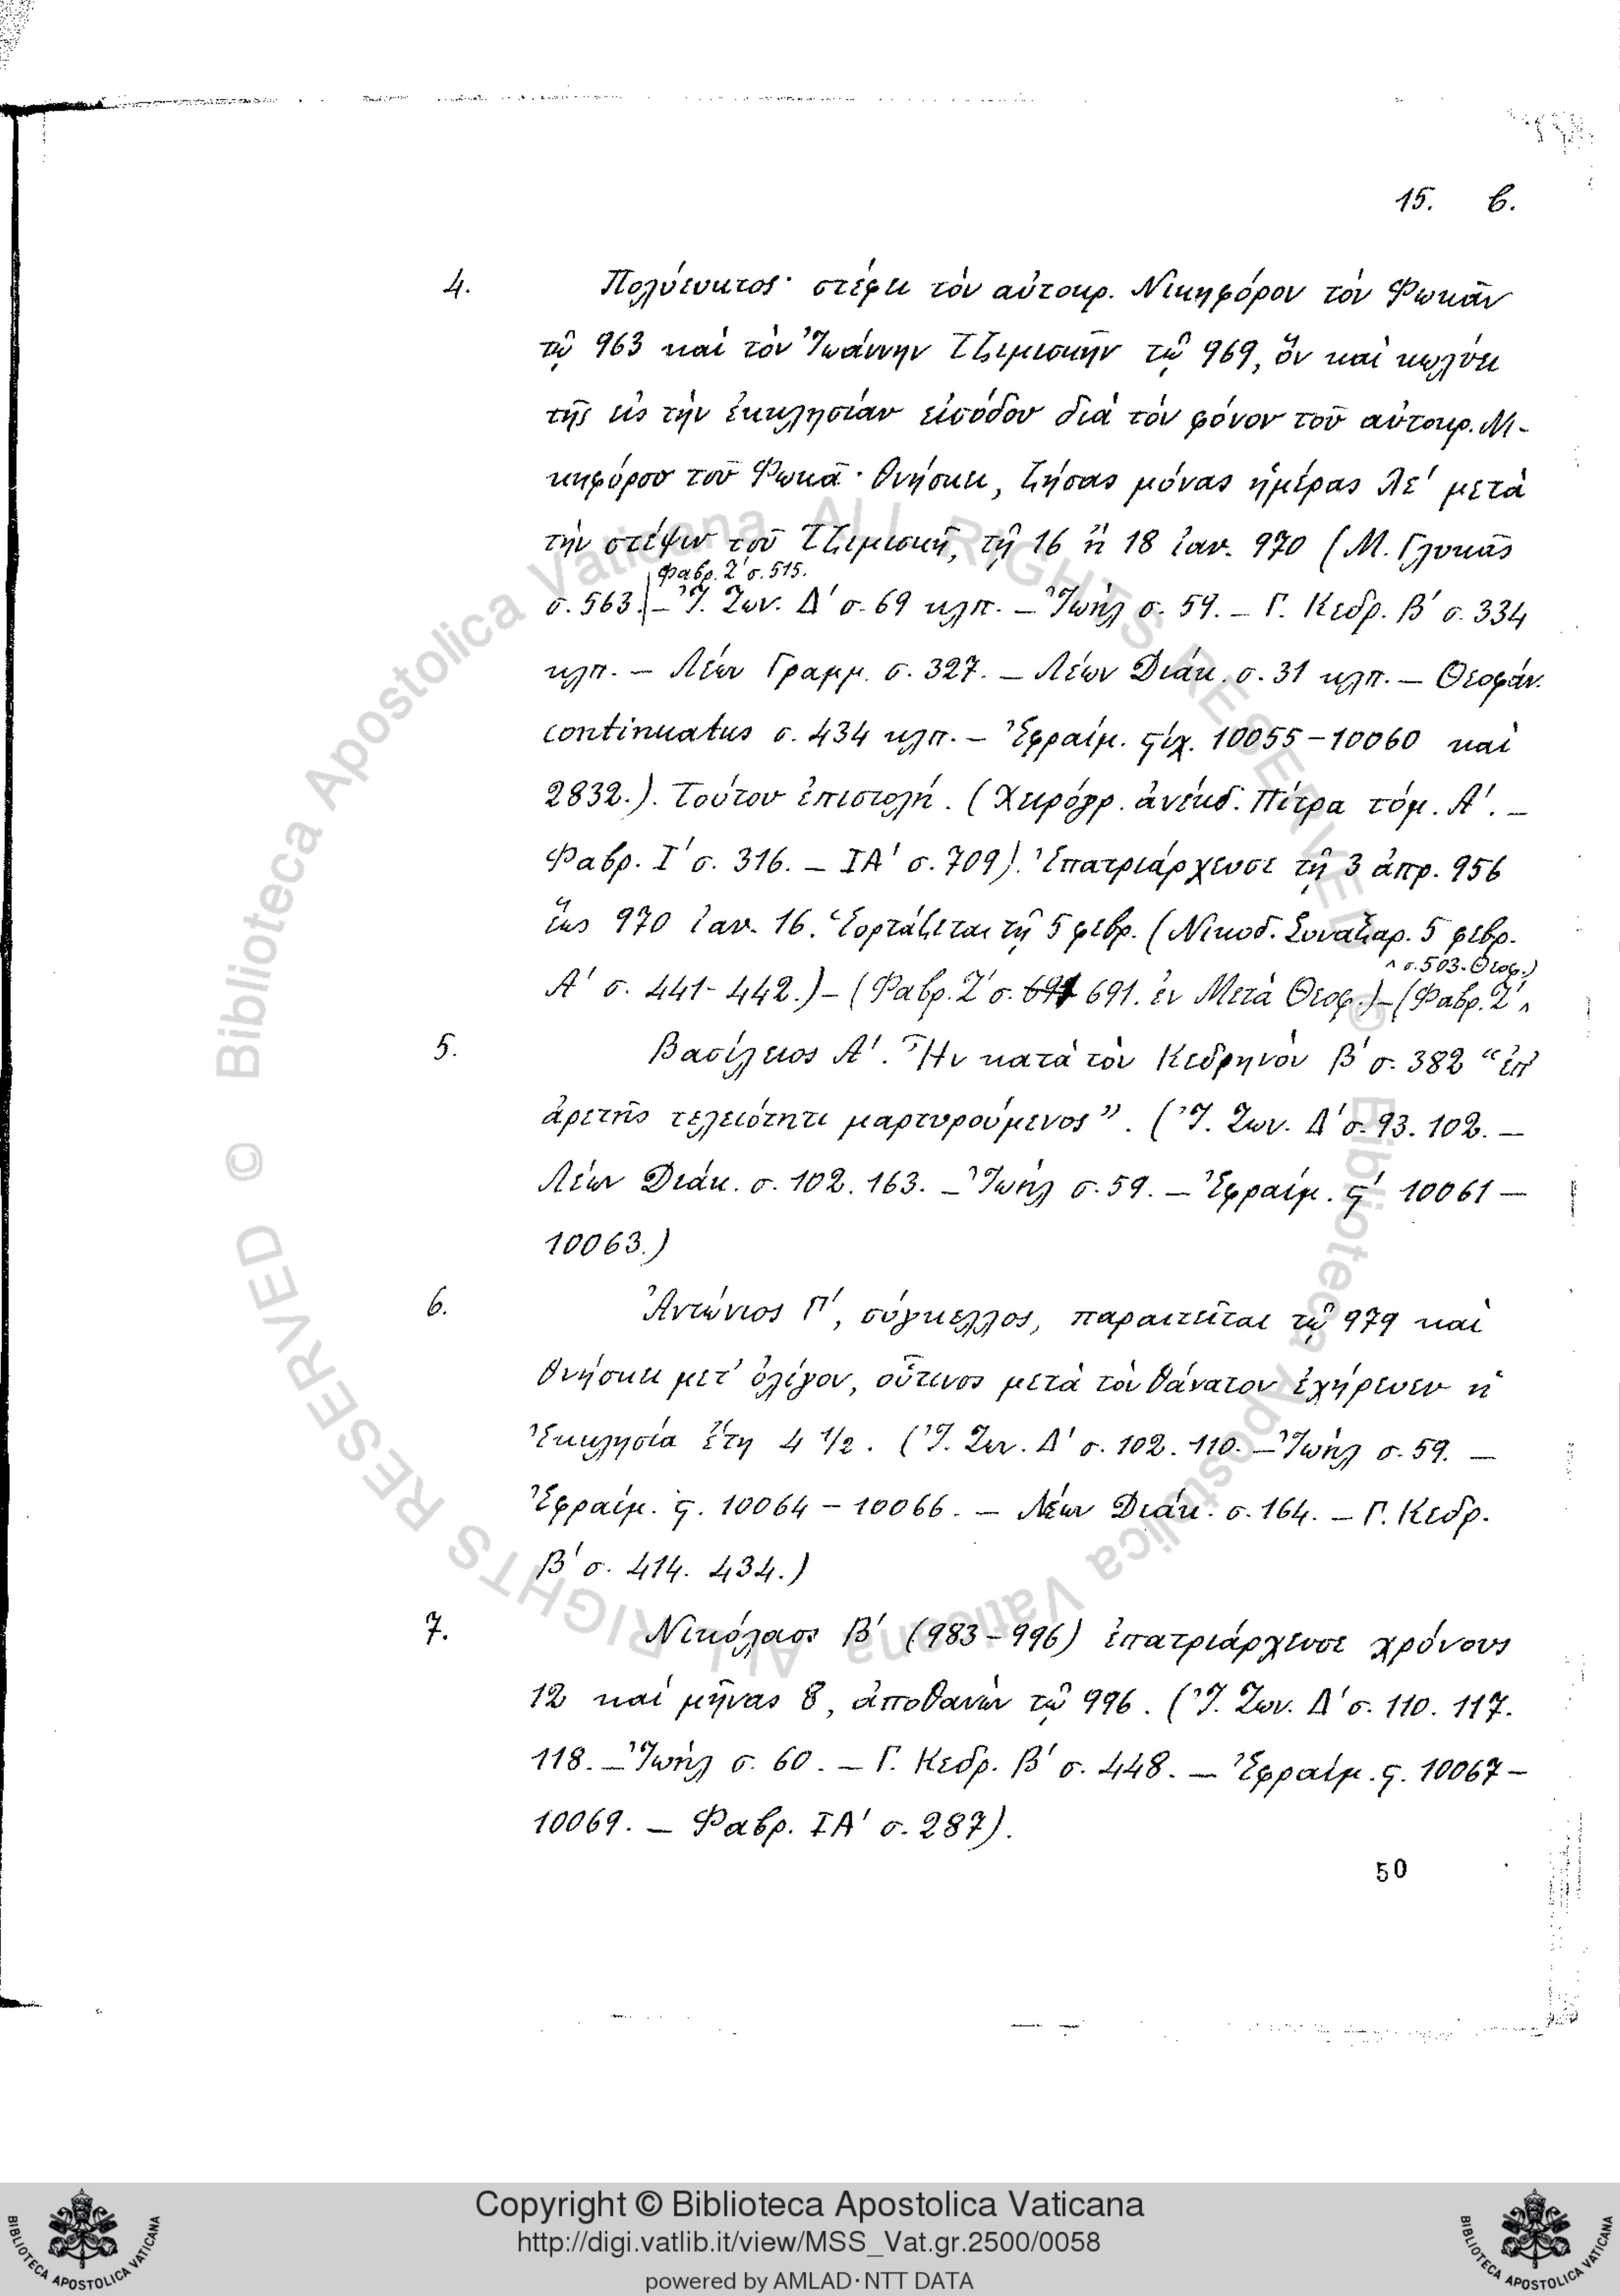 15. β.
4. Πολύευκτος· στέφει τὸν αὐτοκρ. Νικηφόρον τὸν Φωκᾶν
τῷ 963 καὶ τὸν Ἰωάννην Τζιμισκῆν τῷ 969, ὃν καὶ κωλύει
τῆς εἰς τὴν ἐκκλησίαν εἰσόδου διὰ τὸν φόνον τοῦ αὐτοκρ. Νι-
κηφόρου τοῦ Φωκᾶ· θνήσκει, ζήσας μόνας ἡμέρας λε' μετὰ
τὴν στέψιν τοῦ Τζιμισκῆ, τῇ 16 ἢ 18 ἰαν. 970 (Μ. Γλυκᾶς
Φαβρ. Ζ' σ. 515.
σ. 563. – Ἰ. Ζων. Δ' σ. 69 κλπ. – Ἰωὴλ σ. 59. – Γ. Κεδρ. Β' σ. 334
κλπ. – Λέων Γραμμ. σ. 327. – Λέων Διάκ. σ. 31 κλπ. – Θεοφάν.
continuatus σ. 434 κλπ. – Ἐφραίμ. ϛίχ. 10055–10060 καὶ
2832.). Τούτου ἐπιστολή. (Χειρόγρ. ἀνέκδ. Πίτρα τόμ. Α'. –
Φαβρ. Ι' σ. 316. – ΙΑ' σ. 709). Ἐπατριάρχευσε τῇ 3 ἀπρ. 956
ἕως 970 ἰαν. 16. Ἑορτάζεται τῇ 5 φεβρ. (Νικοδ. Συναξαρ. 5 φεβρ.
^ σ. 503. Θεοφ.)
Α' σ. 441-442.) – (Φαβρ. Ζ' σ. 691. ἐν Μετὰ Θεοφ.) – (Φαβρ. Ζ' ^
5. Βασίλειος Α'. Ἦν κατὰ τὸν Κεδρηνὸν Β' σ. 382 “ἐπ'
ἀρετῆς τελειότητι μαρτυρούμενος”. (Ἰ. Ζων. Δ' σ. 93. 102. –
Λέων Διάκ. σ. 102. 163. – Ἰωὴλ σ. 59. – Ἐφραίμ. ϛ' 10061 –
10063.)
6. Ἀντώνιος Γ', σύγκελλος, παραιτεῖται τῷ 979 καὶ
θνήσκει μετ' ὀλίγον, οὗτινος μετὰ τὸν θάνατον ἐχήρευεν ἡ
Ἐκκλησία ἔτη 4 1/2. (Ἰ. Ζων. Δ' σ. 102. 110. – Ἰωὴλ σ. 59. –
Ἐφραίμ. ϛ. 10064 – 10066. – Λέων Διάκ. σ. 164. – Γ. Κεδρ.
Β' σ. 414. 434.)
7. Νικόλαος Β' (983–996) ἐπατριάρχευσε χρόνους
12 καὶ μῆνας 8, ἀποθανὼν τῷ 996. (Ἰ. Ζων. Δ' σ. 110. 117.
118. – Ἰωὴλ σ. 60. – Γ. Κεδρ. Β' σ. 448. – Ἐφραίμ. ϛ. 10067 –
10069. – Φαβρ. ΙΑ' σ. 287).
50
© Biblioteca Apostolica Vaticana ALL RIGHTS RESERVED
© Biblioteca Apostolica Vaticana ALL RIGHTS RESERVED
Copyright © Biblioteca Apostolica Vaticana
http://digi.vatlib.it/view/MSS_Vat.gr.2500/0058
powered by AMLAD·NTT DATA
BIBLIOTECA APOSTOLICA VATICANA
BIBLIOTECA APOSTOLICA VATICANA